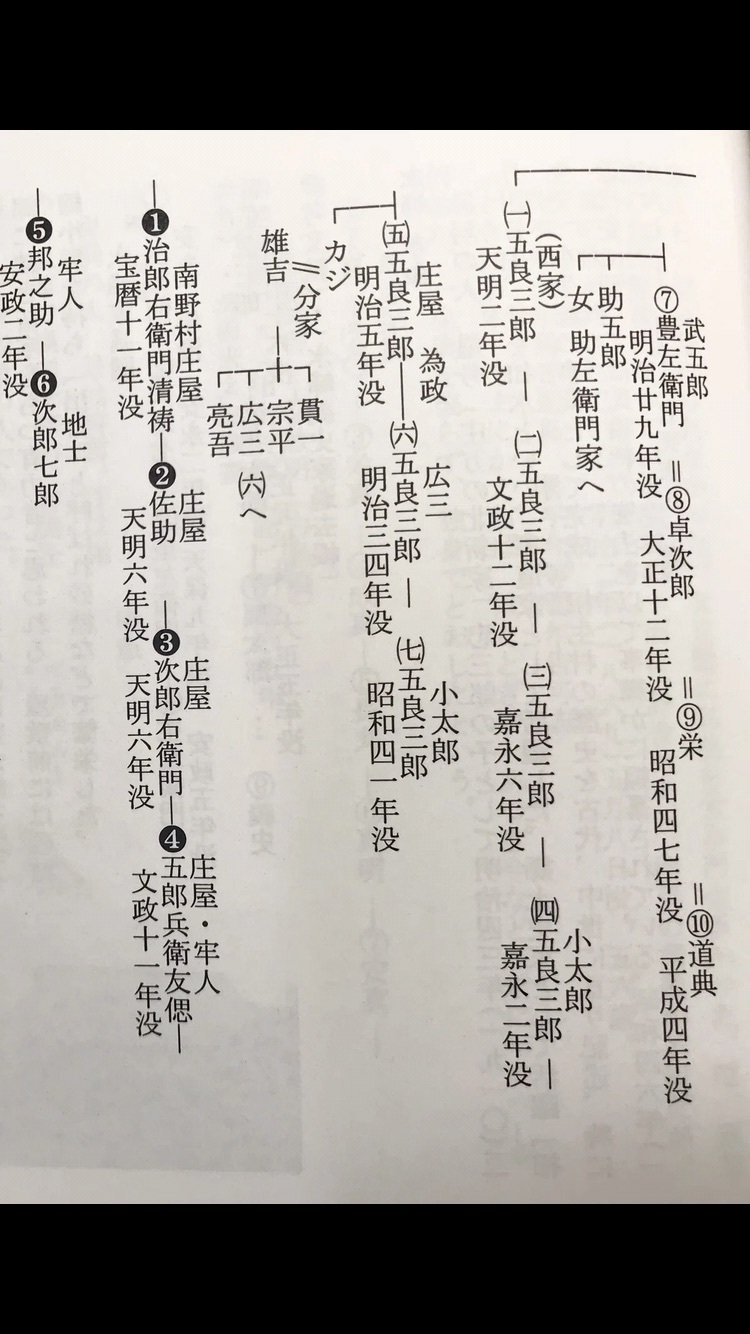 武五郎
⑦豊左衛門 ＝⑧卓次郎 ＝⑨栄 ＝⑩道典
明治廿九年没 大正十二年没 昭和四七年没 平成四年没
助五郎
女 助左衛門家へ
(西家) 小太郎
㈠五良三郎 ― ㈡五良三郎 ― ㈢五良三郎 ― ㈣五良三郎 ―
天明二年没 文政十二年没 嘉永六年没 嘉永二年没
庄屋 為政 広三 小太郎
㈤五良三郎 ― ㈥五良三郎 ― ㈦五良三郎
明治五年没 明治三四年没 昭和四一年没
カジ
＝分家 貫一
雄吉 宗平
広三 ㈥へ
亮吾
南野村庄屋 庄屋 庄屋 庄屋・牢人
❶治郎右衛門清祷―❷佐助 ―❸次郎右衛門―❹五郎兵衛友偲―
宝暦十一年没 天明六年没 天明六年没 文政十一年没
牢人 地士
❺邦之助 ―❻次郎七郎
安政二年没